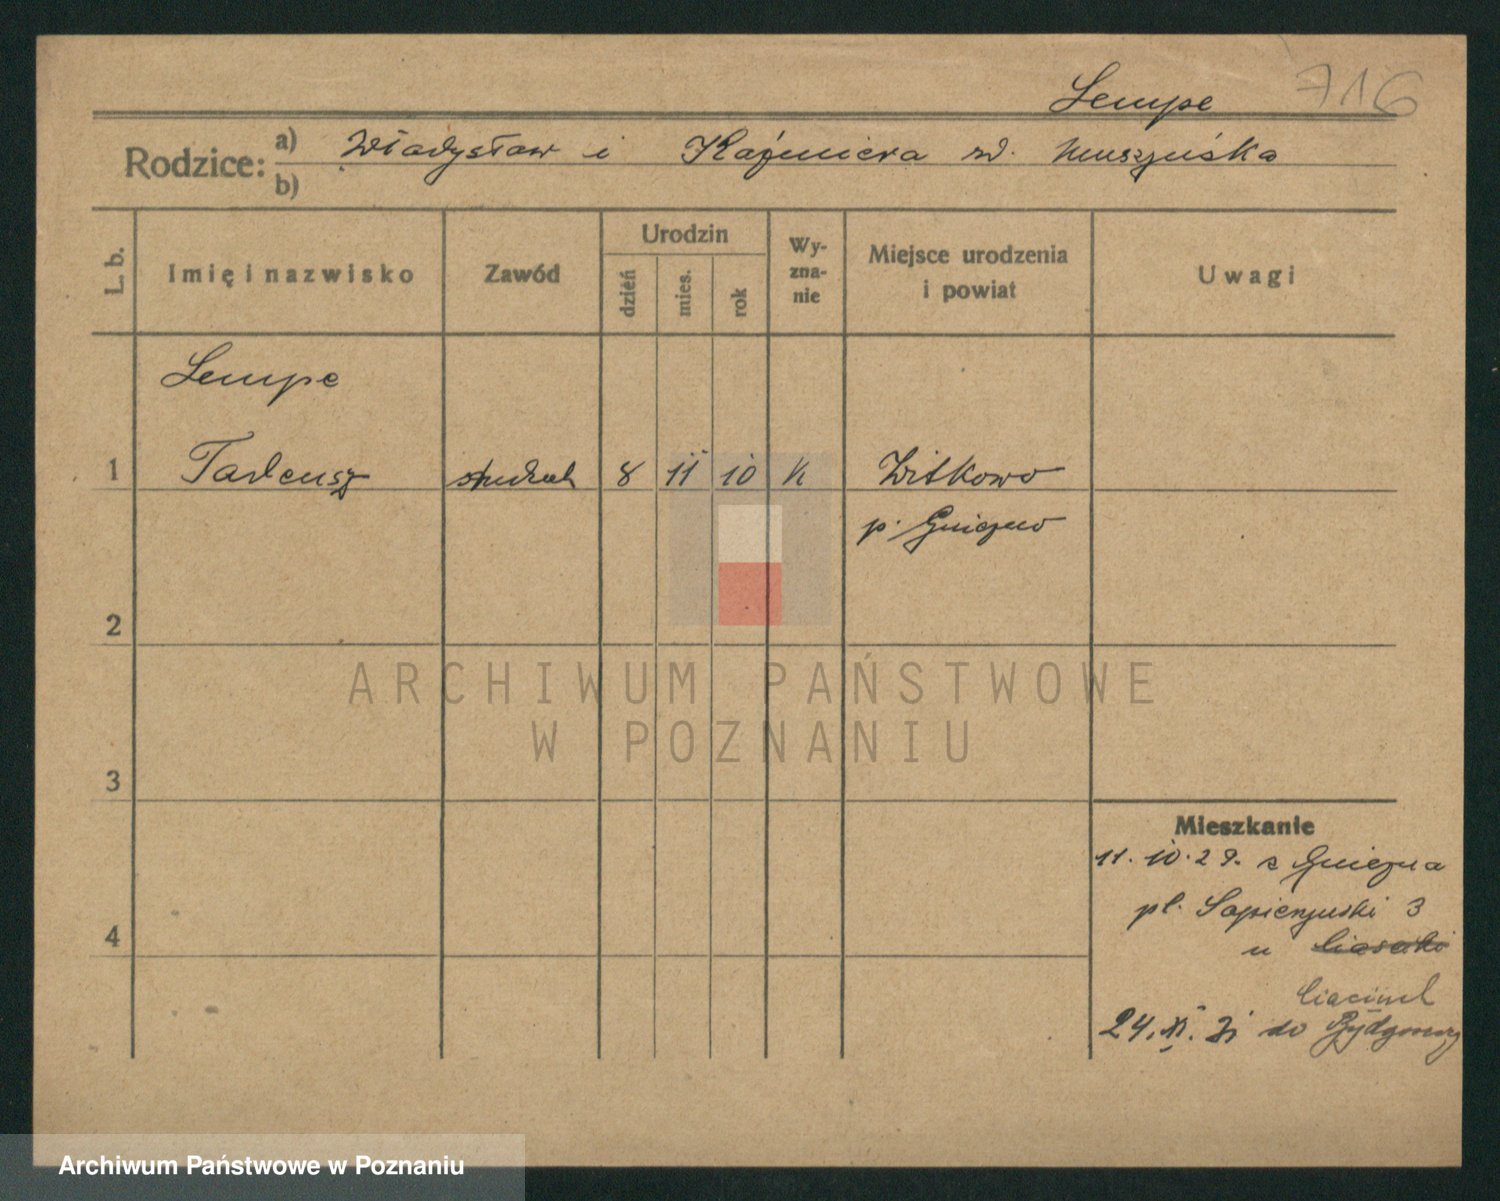 Lempe 716
Rodzice: a) Władysław i Kaźmiera zd. Muszyńska
b)
L. b.
Imię i nazwisko
Zawód
Urodzin
dzień
mies.
rok
Wy-
zna-
nie
Miejsce urodzenia
i powiat
Uwagi
Lempe
1 Tadeusz student 8 11 10 K Witkowo
p. Gniezno
2
3
4
Mieszkanie
11. 10. 29. z Gniezna
pl. Sapieżyński 3
u
24. XI. 31 do Bydgoszczy
ARCHIWUM PAŃSTWOWE
W POZNANIU
Archiwum Państwowe w Poznaniu